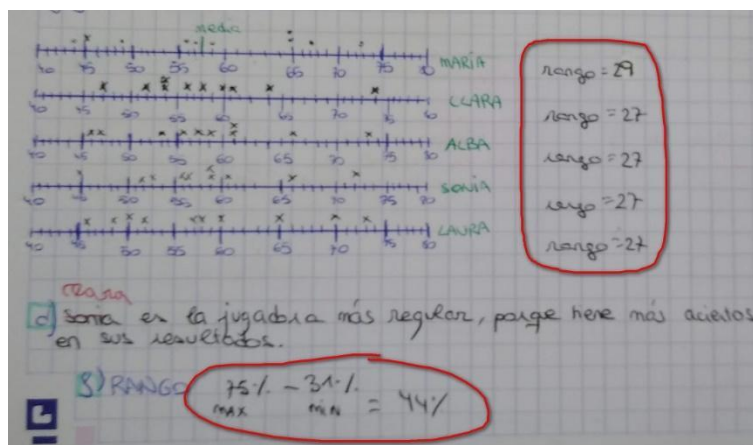 media
40 45 50 55 60 65 70 75 80 MARÍA
40 45 50 55 60 65 70 75 80 CLARA
40 45 50 55 60 65 70 75 80 ALBA
40 45 50 55 60 65 70 75 80 SONIA
40 45 50 55 60 65 70 75 80 LAURA
rango = 29
rango = 27
rango = 27
rango = 27
rango = 27
Clara
d) Sonia es la jugadora más regular, porque tiene más aciertos
en sus resultados.
g) RANGO 75% - 31% = 44%
MAX MIN